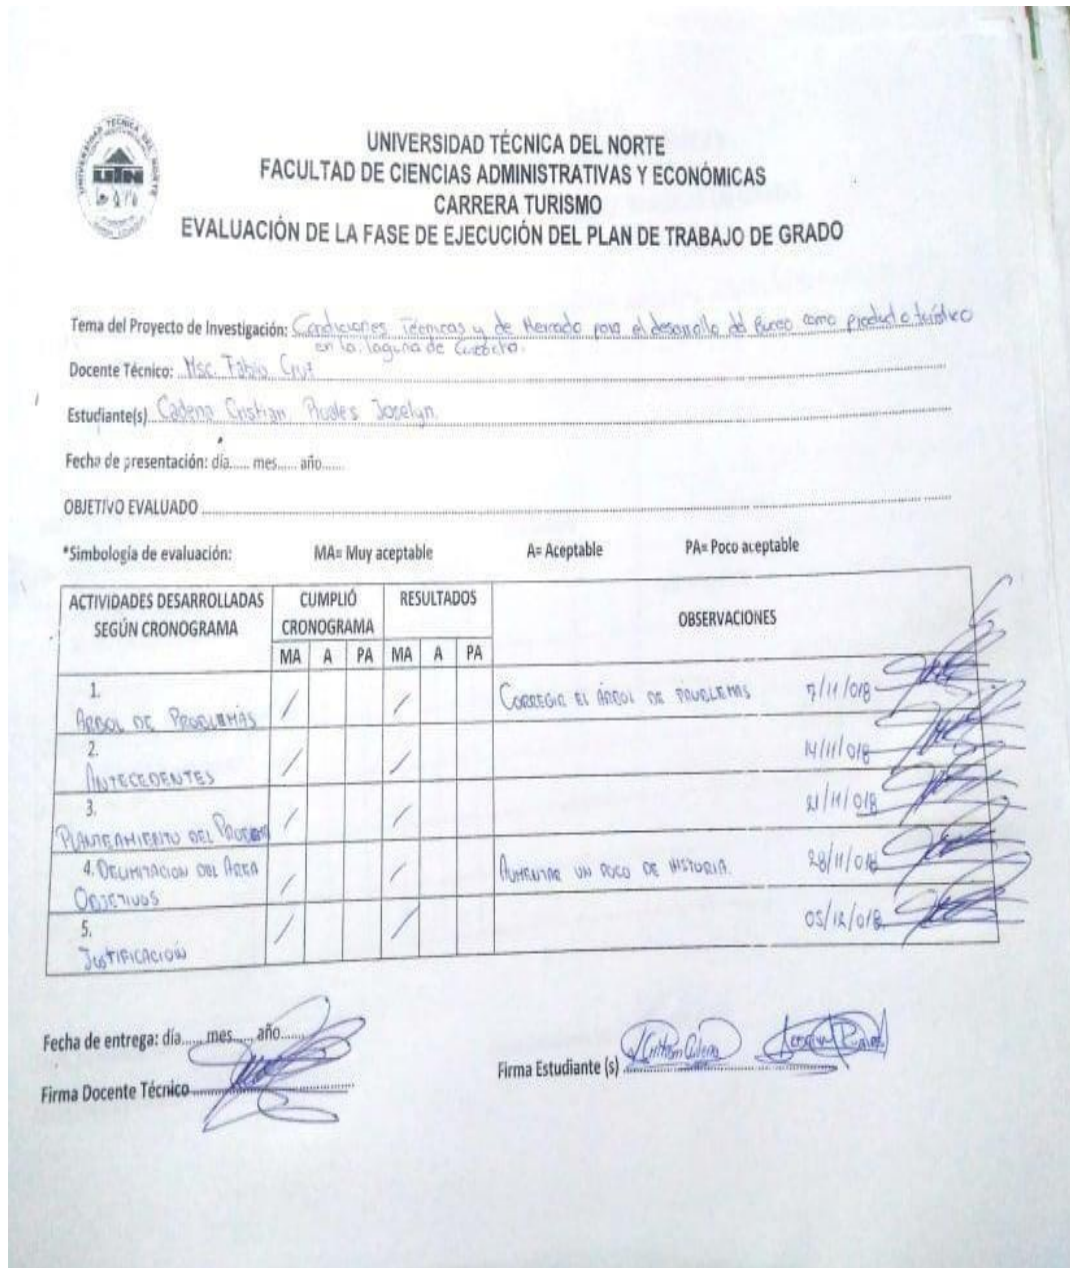 UNIVERSIDAD TÉCNICA DEL NORTE
FACULTAD DE CIENCIAS ADMINISTRATIVAS Y ECONÓMICAS
CARRERA TURISMO
EVALUACIÓN DE LA FASE DE EJECUCIÓN DEL PLAN DE TRABAJO DE GRADO
UNIVERSIDAD TÉCNICA DEL NORTE
UTN
Tema del Proyecto de Investigación: Condiciones Técnicas y de Mercado para el desarrollo del Buceo como producto turístico
en la laguna de Cuicocha.
Docente Técnico: Msc. Fabio Cruz
Estudiante(s) Cadena Cristian, Ruales Joselyn.
Fecha de presentación: día...... mes...... año......
OBJETIVO EVALUADO
*Simbología de evaluación: MA= Muy aceptable A= Aceptable PA= Poco aceptable
ACTIVIDADES DESARROLLADAS SEGÚN CRONOGRAMA CUMPLIÓ CRONOGRAMA RESULTADOS OBSERVACIONES
MA A PA MA A PA
1. ÁRBOL DE PROBLEMAS / / CORREGIR EL ÁRBOL DE PROBLEMAS 7/11/018
2. ANTECEDENTES / / 14/11/018
3. PLANTEAMIENTO DEL PROBLEMA / / 21/11/018
4. DELIMITACION DEL AREA OBJETIVOS / / AUMENTAR UN POCO DE HISTORIA. 28/11/018
5. JUSTIFICACIÓN / / 05/12/018
Fecha de entrega: día...... mes...... año......
Firma Docente Técnico
Firma Estudiante (s)